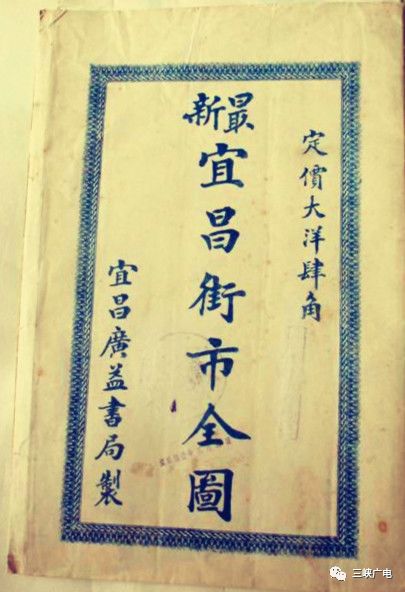 定價大洋肆角
最新
宜昌街市全圖
宜昌廣益書局製
三峡广电